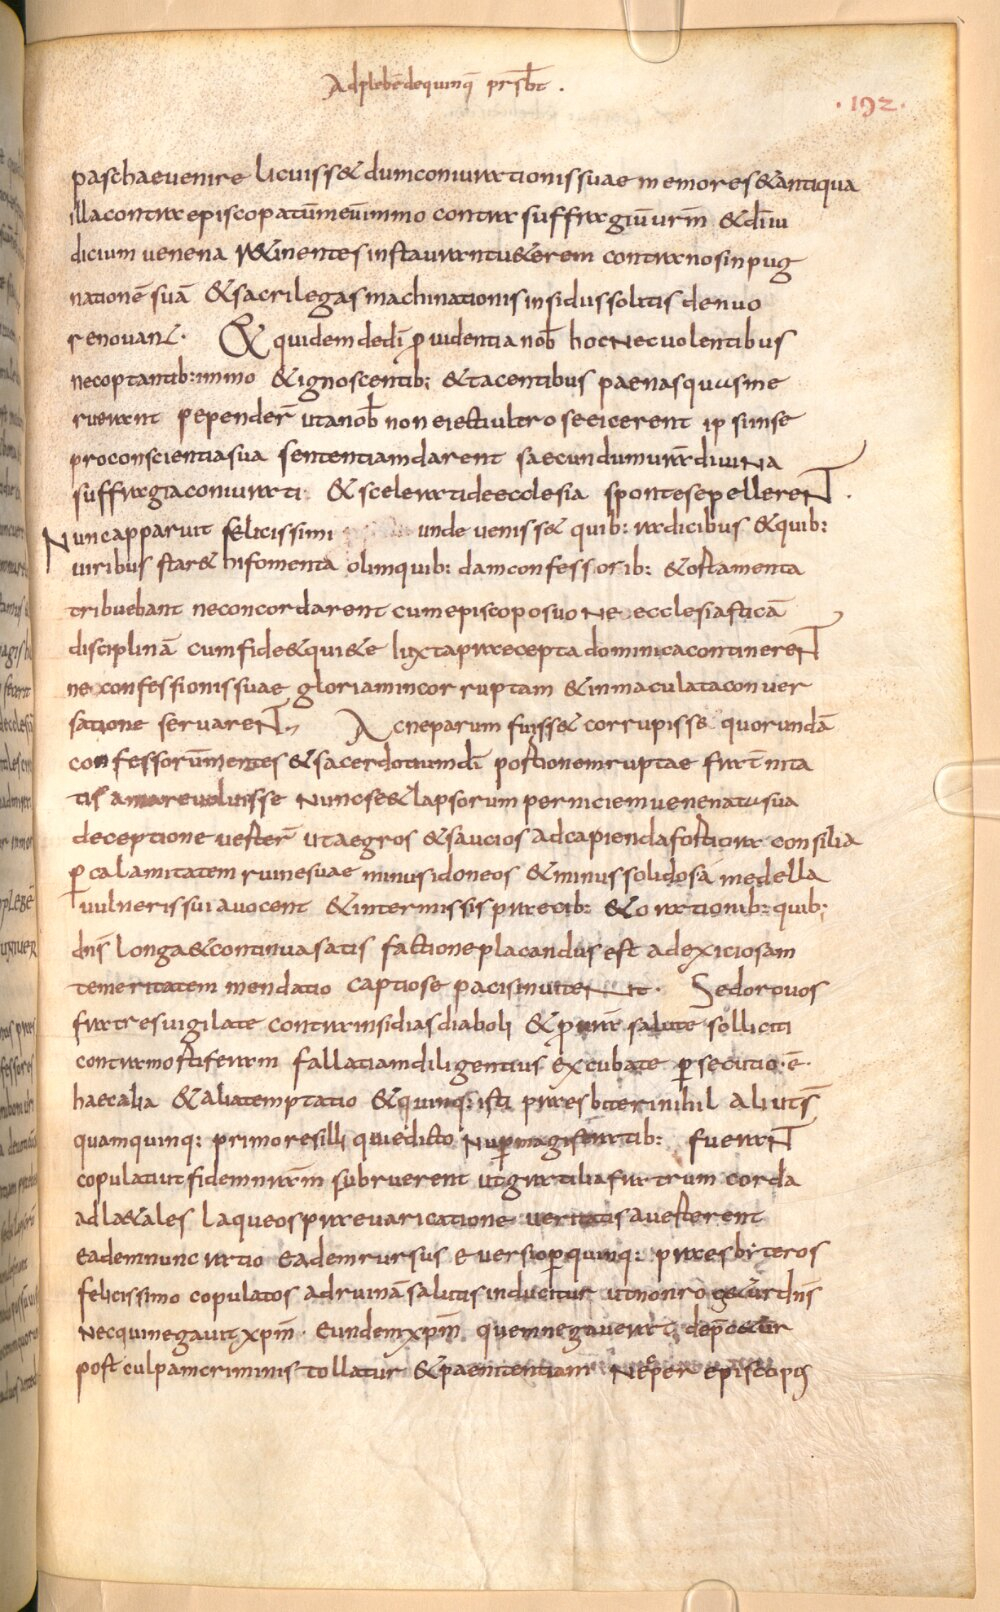 Adplebēdequinq̄ prsb̄t .
· 192 ·
paschaevenire licuiss& dumconiurationissuae memores &antiqua
illacontraepiscopatūmeūimmo contra suffragiū urm̄ &dī iu
dicium venena r&inentes instaurantu&erem contranosinpug
nationē suā &sacrilegasmachinationisinsidussolitis denuo
renouan&· Et quidemdedī ꝓuidentia nob̄ hocnecvolentibus
necoptantib: immo &ignoscentib; &tacentibus paenasquasme
ruerant pependēr utanob̄ noneiectiultroseeicerent ipsiinse
proconscientiasua sententiamdarent saecundumur̄adiuina
suffragiaconiurati · &sceleratideecclesia spontesepellerent .
Nuncapparuit felicissimi unde veniss& quib: radicibus &quib:
uiribus star& hifomenta olimquib: damconfessorib: &ostamenta
tribuebant neconcordarent cumepiscoposuo ne ecclesiasticā
disciplinā cumfide&qui&e iuxtapraeceptadominicacontinerent
ne confessionissuae gloriamincorruptam &inmaculataconuer
satione servarent., Acneparum fuiss& corrupisse quorundā
confessorūmentes &sacerdotiumdī postionemruptae frat̄nita
tis amarevoluisse nuncse&lapsorum perniciemuenenatasua
deceptione uestēr utaegros &saucios adcapiendafortiora consilia
ꝑcalamitatem ruinesuae minusidoneos &minussolidosā medella
uulnerissui auocent &intermissisprecib: &orationib: quib:
dn̄s longa&continuasatis factioneplacandus est adexiciosam
temeritatem mendatio captiose pacisinuitent · Sedorouos
fratresuigilate contrainsidiasdiaboli &ꝓur̄a salute solliciti
contramostiferam fallatiamdiligentius excubate ꝑsecutio·ē·
haecalia &aliatemptatio &quinq: isti praesbiterinihil aliut s̄
quamquinq: primoresilli quiedicto nuꝑmagistratib: fuerant
copulatiutfidemnrām subruerent utgratiliafratrum corda
adla&ales laqueospraevaricatione veritatis auesterent
eademnunc ratio eademrursus eversioꝑquinq: praesbiteros
felicissimo copulatos adruinā salutis inducitur utnonrog&urdn̄s
necquinegauitxp̄m · eundemxp̄m quemnegauerat dep̄c&ur
post culpamcriminis tollatur &paenitentiam neper episcopos